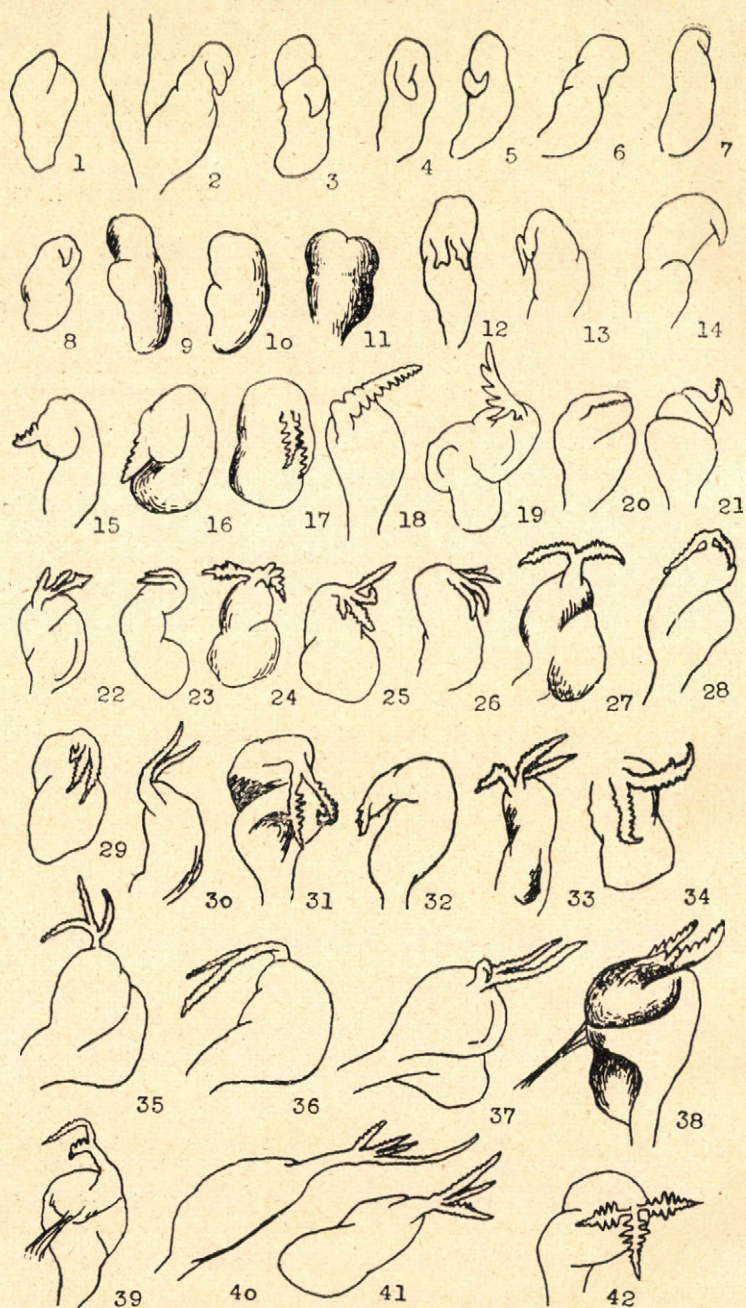 1 2 3 4 5 6 7
8 9 10 11 12 13 14
15 16 17 18 19 20 21
22 23 24 25 26 27 28
29 30 31 32 33 34
35 36 37 38
39 40 41 42